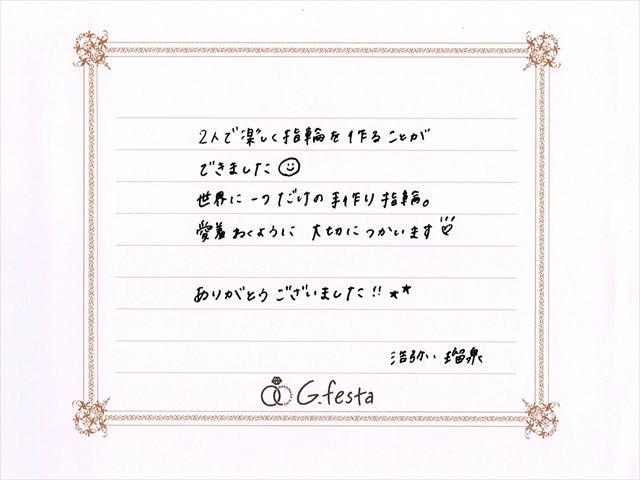 2人で楽しく指輪を作ることが
できました☺
世界に一つだけの手作り指輪。
愛着わくように 大切につかいます♡
ありがとうございました!! ★★
浩弥、瑠泉
G.festa